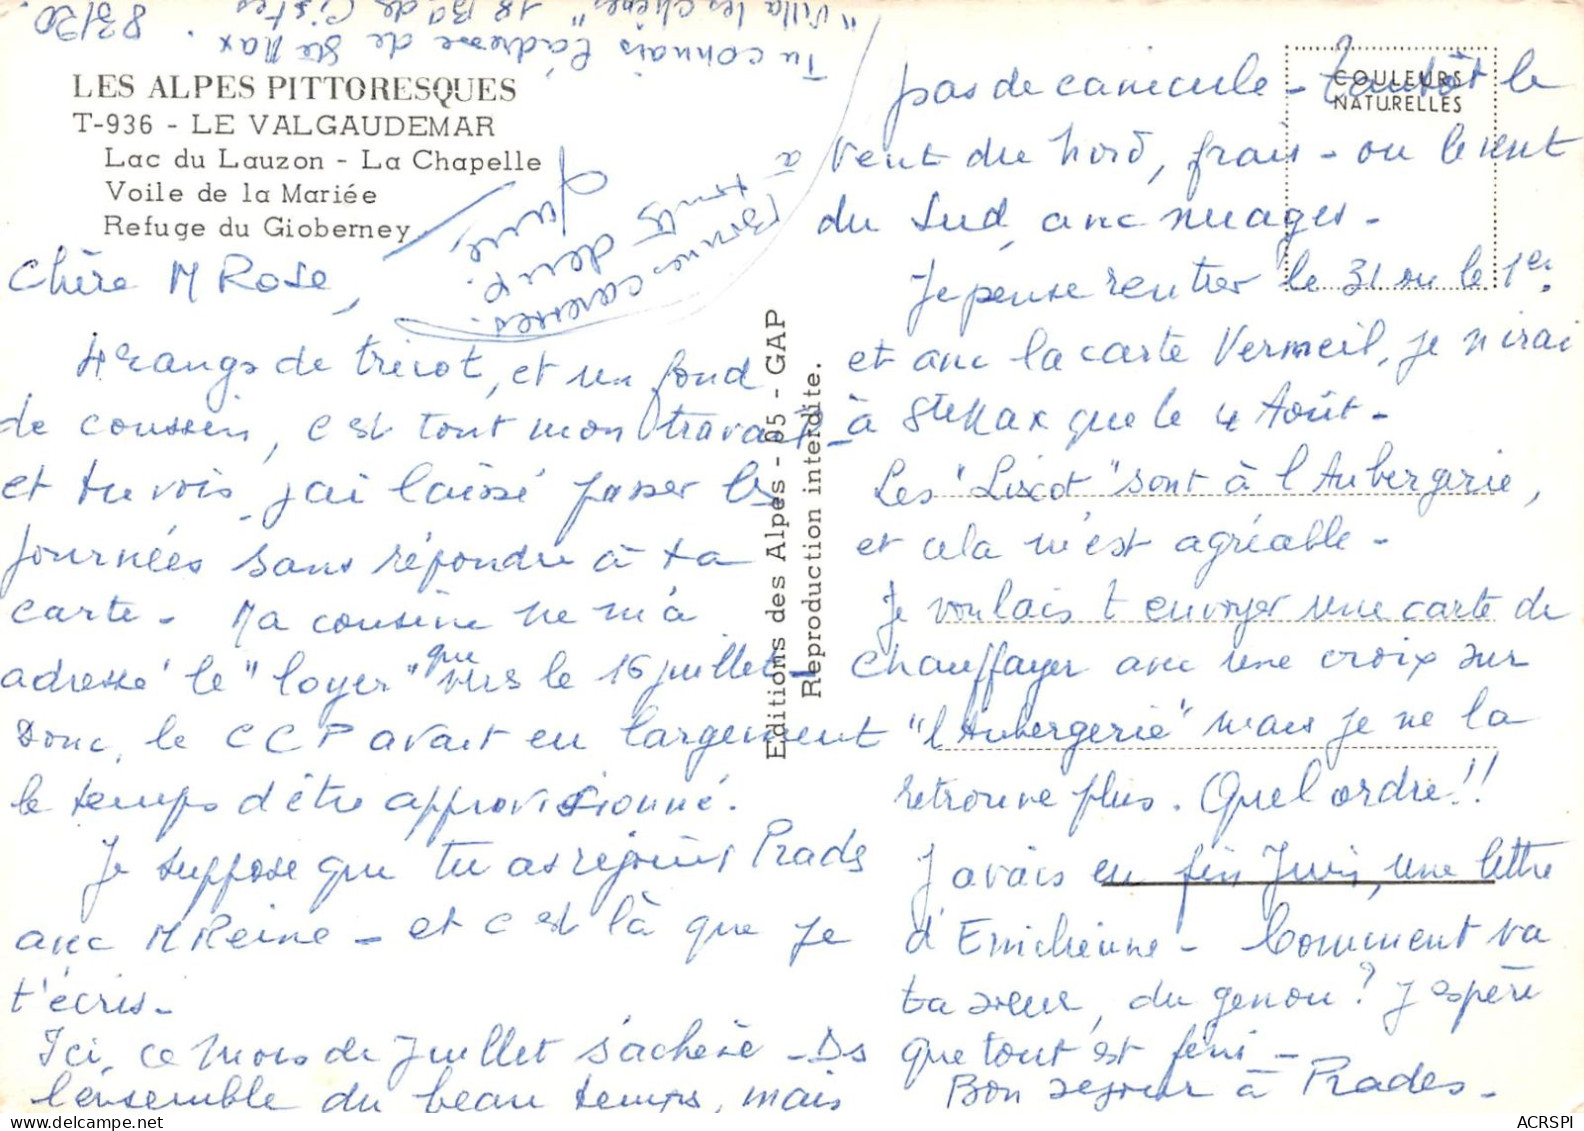 LES ALPES PITTORESQUES
T-936 - LE VALGAUDEMAR
Lac du Lauzon - La Chapelle
Voile de la Mariée
Refuge du Gioberney
Chère M Rose,
4 rangs de tricot, et un fond
de coussin, c'est tout mon travail
et tu vois, j'ai laissé passer les
journées sans répondre à ta
carte - Ma cousine ne m'a
adressé le "loyer" que vers le 16 juillet -
Donc, le CCP avait eu largement
le temps d'être approvisionné.
Je suppose que tu as rejoins Prades
avec M Reine - et c'est là que je
t'écris -
Ici, ce mois de Juillet s'achève - Ds
l'ensemble du beau temps, mais
pas de canicule - tantôt le
vent du Nord, frais - ou le vent
du Sud, avec nuages -
Je pense rentrer le 31 ou le 1er.
et avec la carte Vermeil, je n'irai
à Ste Max que le 4 Août -
Les "Liscot" sont à l'Aubergerie,
et cela m'est agréable -
Je voulais t'envoyer une carte de
Chauffayer avec une croix sur
"l'Aubergerie" mais je ne la
retrouve plus. Quel ordre!!
J'avais eu fin Juin, une lettre
d'Emilienne - Comment va
ta soeur, du genou? J'espère
que tout est fini -
Bon séjour à Prades -
Tu connais l'adresse de Ste Max.
"Villa les Chênes" 18 Bd des Cistes
83120
Bonnes caresses
à toutes deux.
COULEURS
NATURELLES
Editions des Alpes - 05 - GAP
Reproduction interdite.
ACRSPI